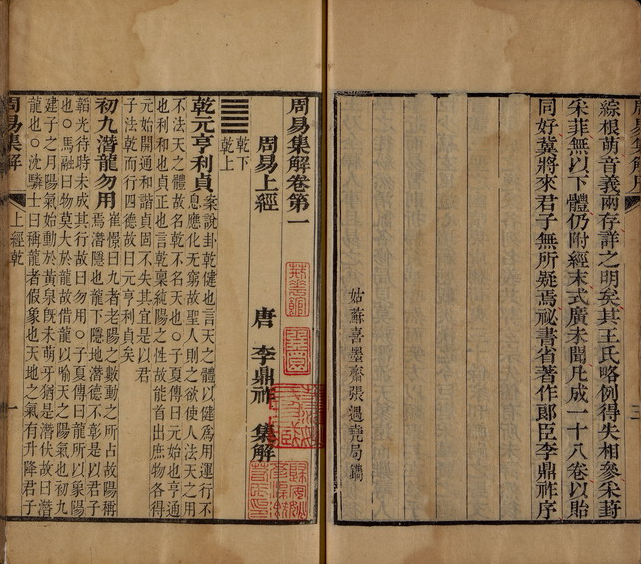 綜根萌音義兩存詳之明矣其王氏略例得失相參采葑
采菲無以下體仍附經末式廣未聞凡成一十八卷以貽
同好冀將來君子無所疑焉祕書省著作郎臣李鼎祚序
姑蘇喜墨齋張遇堯局鐫
三
周易集解卷第一
周易上經
唐 李鼎祚 集解
乾下
乾上
乾元亨利貞
案說卦乾健也言天之體以健爲用運行不
息應化无窮故聖人則之欲使人法天之用
不法天之體故名乾不名天也○子夏傳曰元始也亨通
也利和也貞正也言乾稟純陽之性故能首出庶物各得
元始開通和諧貞固不失其宜是以君
子法乾而行四德故曰元亨利貞矣
初九潛龍勿用
崔憬曰九者老陽之數動之所占故陽稱
焉潛隱也龍下隱地潛德不彰是以君子
韜光待時未成其行故曰勿用○子夏傳曰龍所以象陽
也○馬融曰物莫大於龍故借龍以喻天之陽氣也初九
建子之月陽氣始動於黃泉旣未萌牙猶是潛伏故曰潛
龍也○沈驎士曰稱龍者假象也天地之氣有升降君子
周易集解
上經乾
一